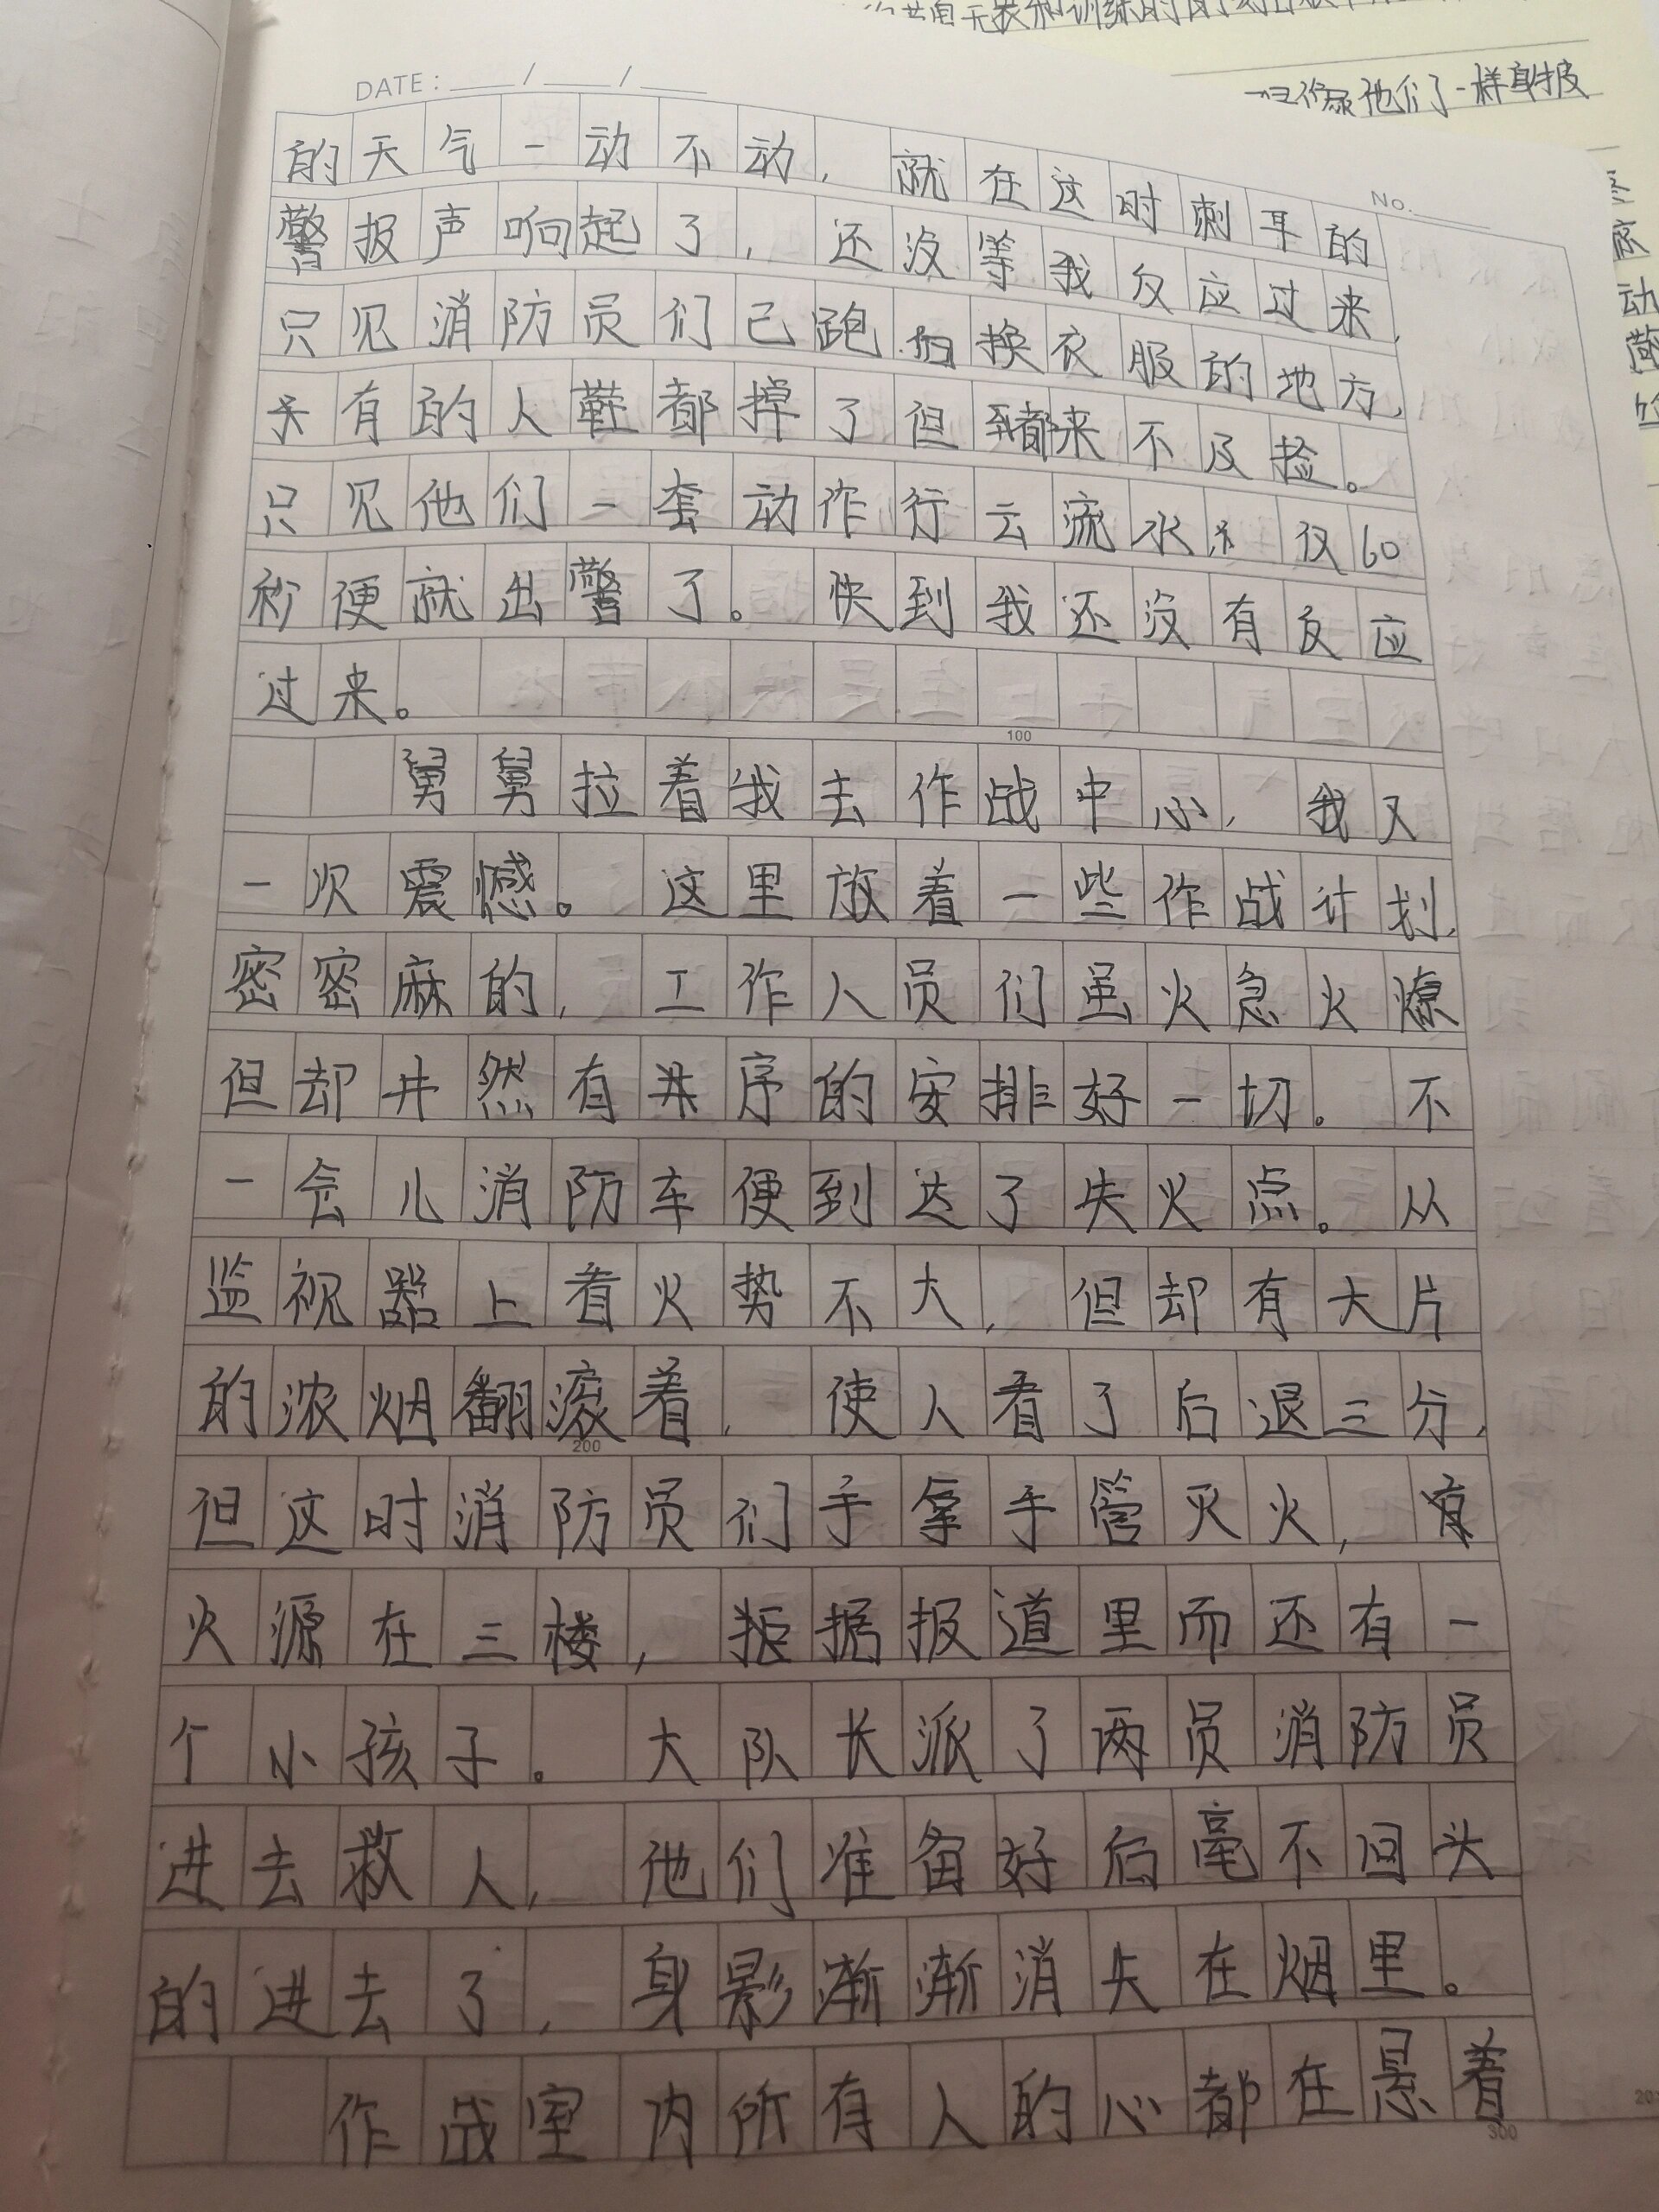 DATE: / /
No.
一样身披
的天气一动不动，就在这时刺耳的
警报声响起了，还没等我反应过来，
只见消防员们已跑向换衣服的地方，
有的人鞋都掉了但都来不及捡。
只见他们一套动作行云流水，仅60
秒便就出警了。快到我还没有反应
过来。
100
舅舅拉着我去作战中心，我又
一次震憾。这里放着一些作战计划，
密密麻的，工作人员们虽火急火燎
但却井然有序的安排好一切。不
一会儿消防车便到达了失火点。从
监视器上看火势不大，但却有大片
的浓烟翻滚着，使人看了后退三分，
200
但这时消防员们手拿手管灭火，
火源在三楼，据报道里面还有一
个小孩子。大队长派了两员消防员
进去救人，他们准备好后毫不回头
的进去了，身影渐渐消失在烟里。
作战室内所有人的心都在悬着
300